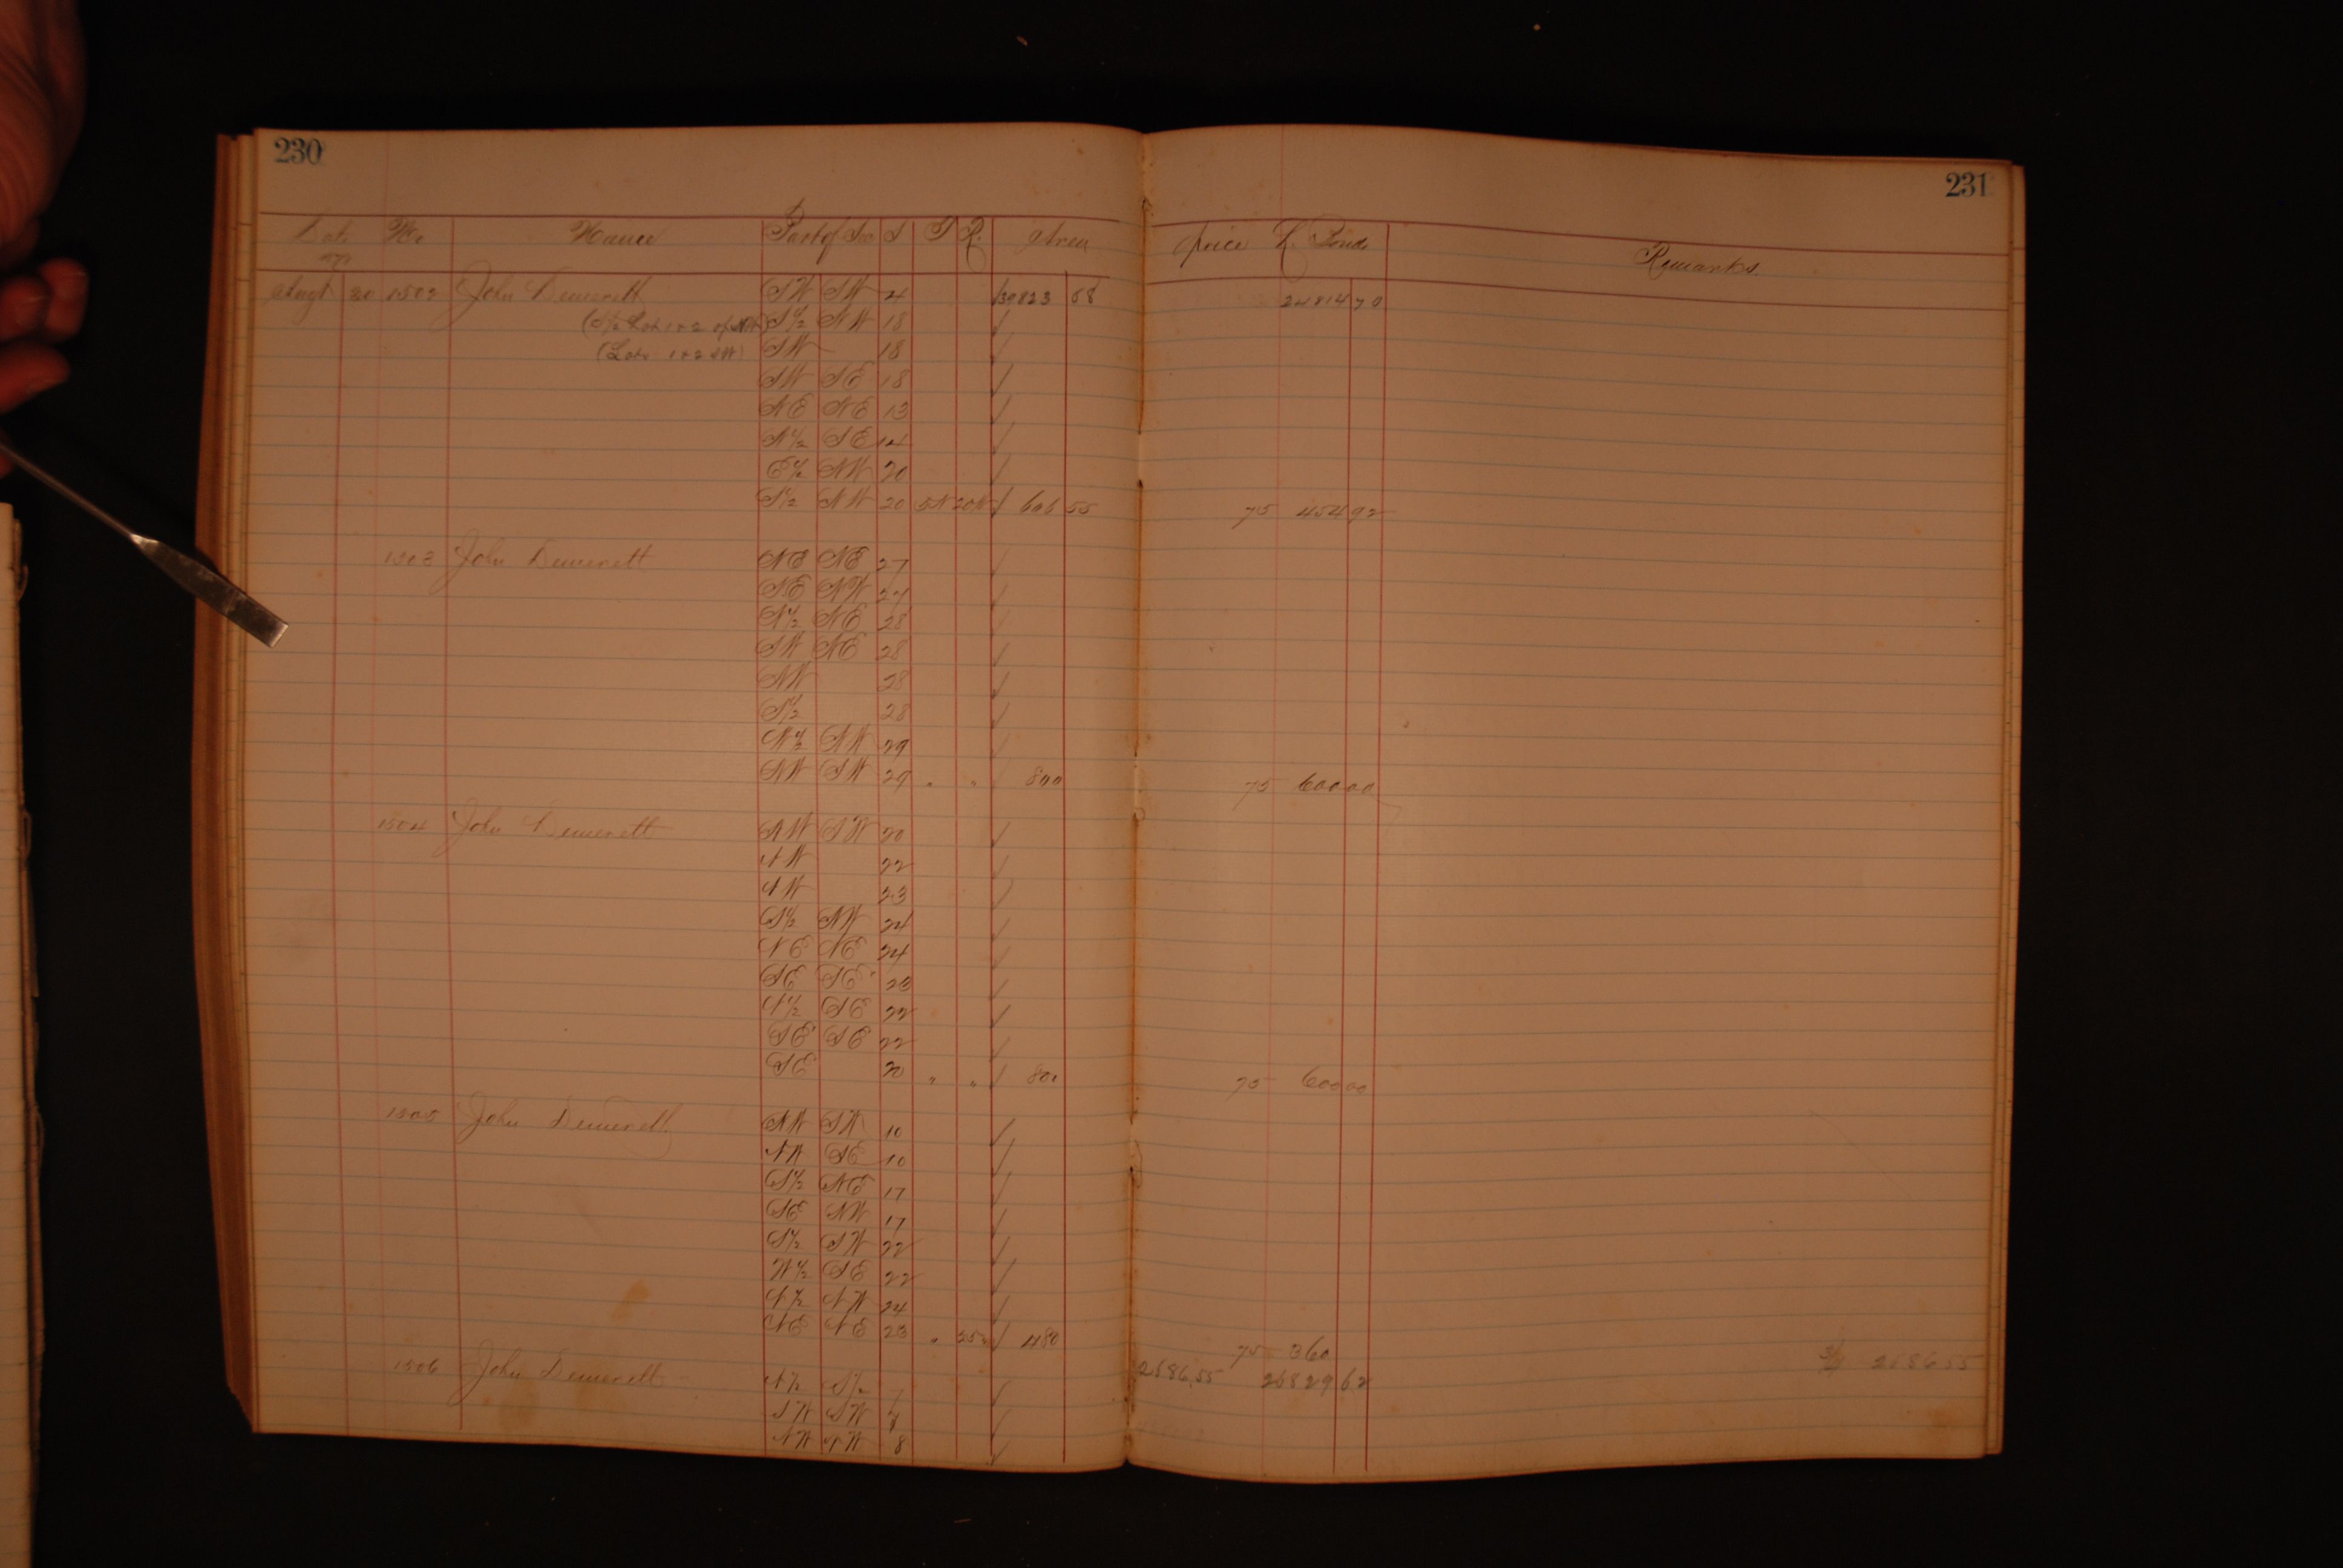 230
231
Date No Name Part of Sec S T R. Area Price L. Bond Remarks.
Augt 20 1502 John Demerett SW SW 4 39823 68 24814 70
(S½ Lots 1 + 2 of NW) S½ NW 18
(Lots 1 + 2 SW) SW 18
SW SE 18
NE NE 13
N½ SE 14
E½ NW 20
S½ NW 20 5N 20W 606 55 75 454 92
1503 John Demerett NE NE 27
SE NW 27
N½ NE 28
SW NE 28
NW 28
S½ 28
N½ NW 29
NW SW 29 " " 800 75 600 00
1504 John Demerett NW SW 20
NW 22
NW 23
S½ NW 24
NE NE 24
SE SE 23
N½ SE 22
SE SE 22
SE 20 " " 800 75 600 00
1505 John Demerett NW SW 10
NW SE 10
S½ NE 17
SE NW 17
S½ SW 22
W½ SE 22
N½ NW 24
NE NE 23 " 480 75 360
1506 John Demerett N½ S½ 7 2686.55 26829 62 2686 55
SW SW 7
NW NW 8